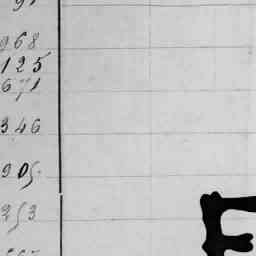 968
125
671
346
905
253